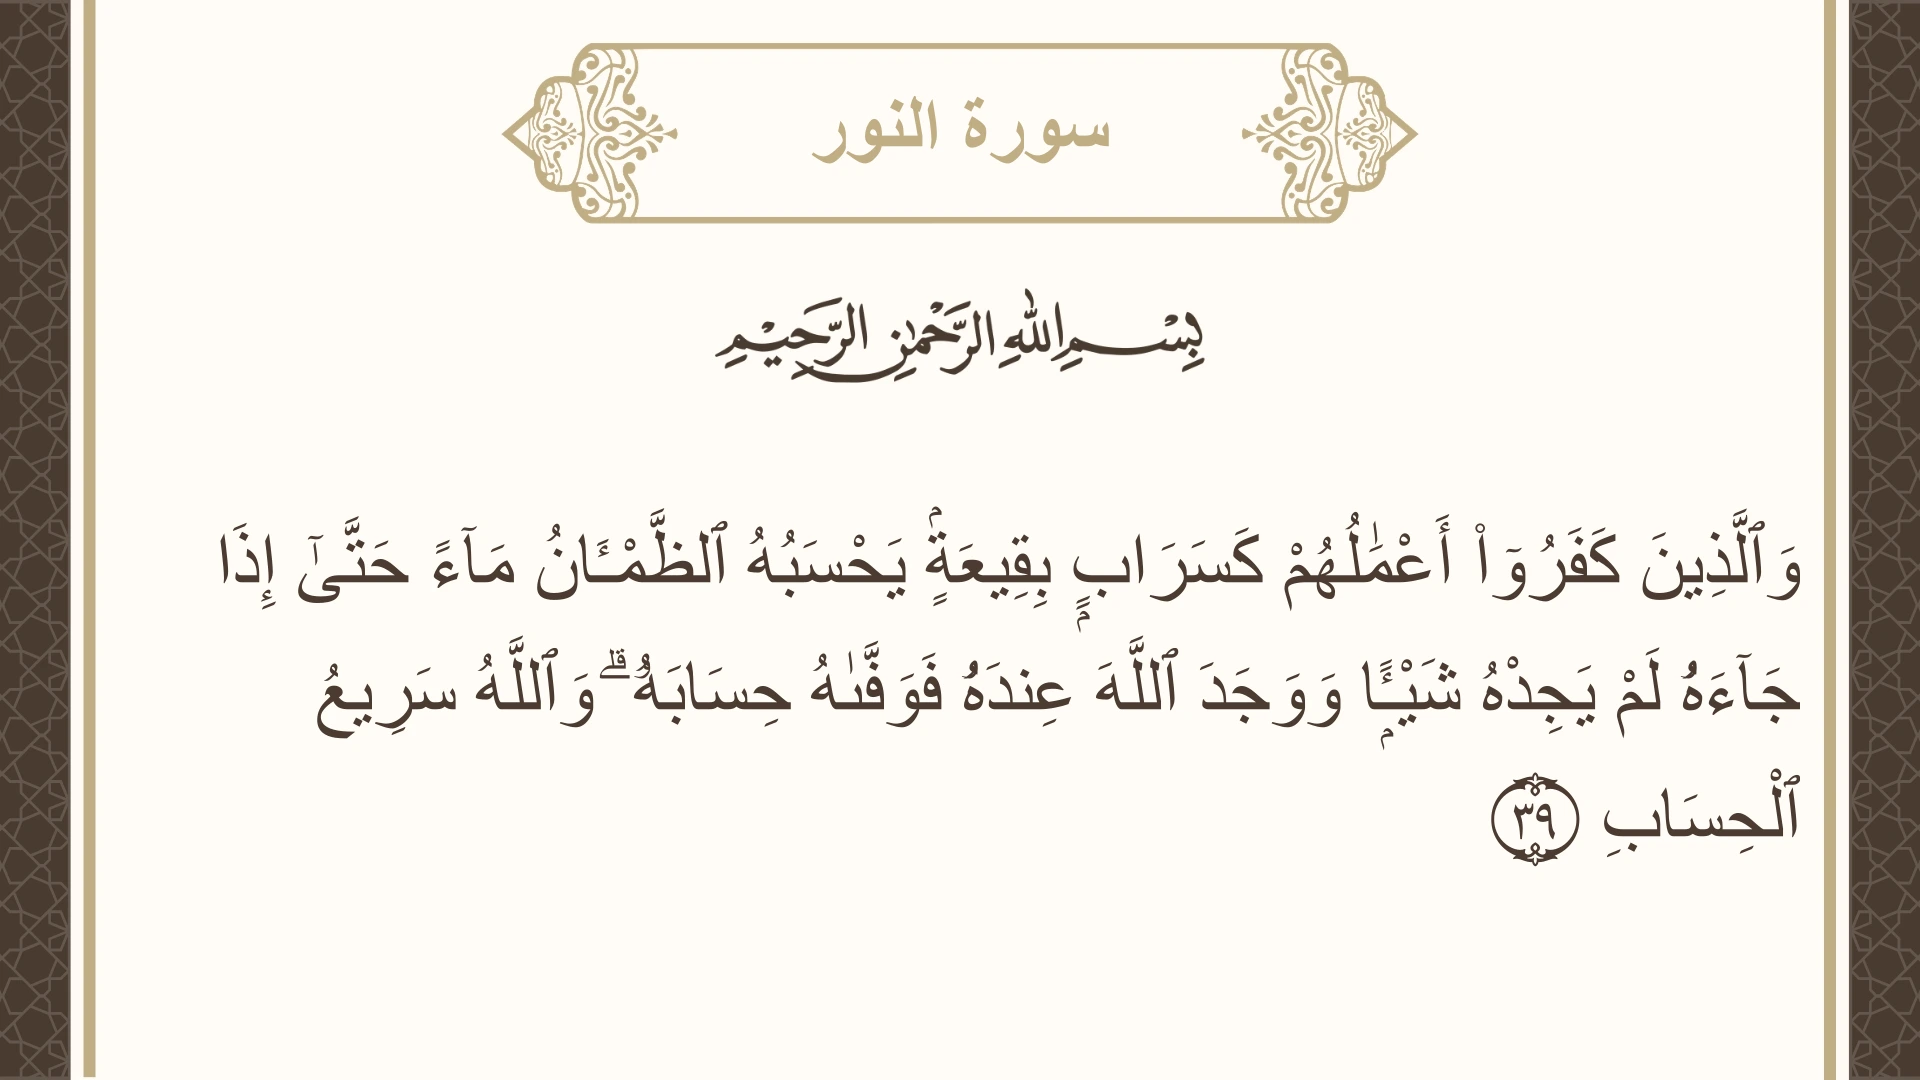 سورة النور
بِسْمِ اللهِ الرَّحْمٰنِ الرَّحِيْمِ
وَٱلَّذِينَ كَفَرُوٓا۟ أَعْمَٰلُهُمْ كَسَرَابٍۭ بِقِيعَةٍۢ يَحْسَبُهُ ٱلظَّمْـَٔانُ مَآءً حَتَّىٰٓ إِذَا
جَآءَهُۥ لَمْ يَجِدْهُ شَيْـًۭٔا وَوَجَدَ ٱللَّهَ عِندَهُۥ فَوَفَّىٰهُ حِسَابَهُۥ ۗ وَٱللَّهُ سَرِيعُ
ٱلْحِسَابِ ٣٩